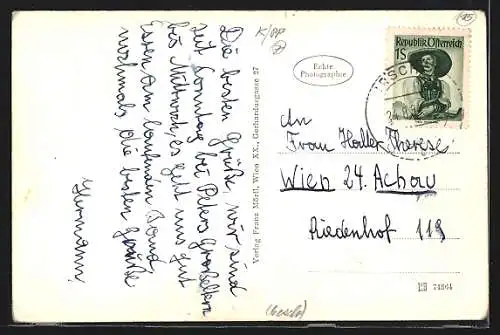 Die besten Grüße, wir sind
seit Sonntag bei Peters Großeltern
bis Mittwoch, es geht uns gut
Essen am laufenden Band,
nochmals die besten Grüße
Hermann
K/PP
Verlag Franz Mörtl, Wien XX., Gerhardusgasse 27
Echte
Photographie
Republik Österreich
1S
An
Frau Haller Therese
Wien 24. Achau
Riedenhof 119
74364